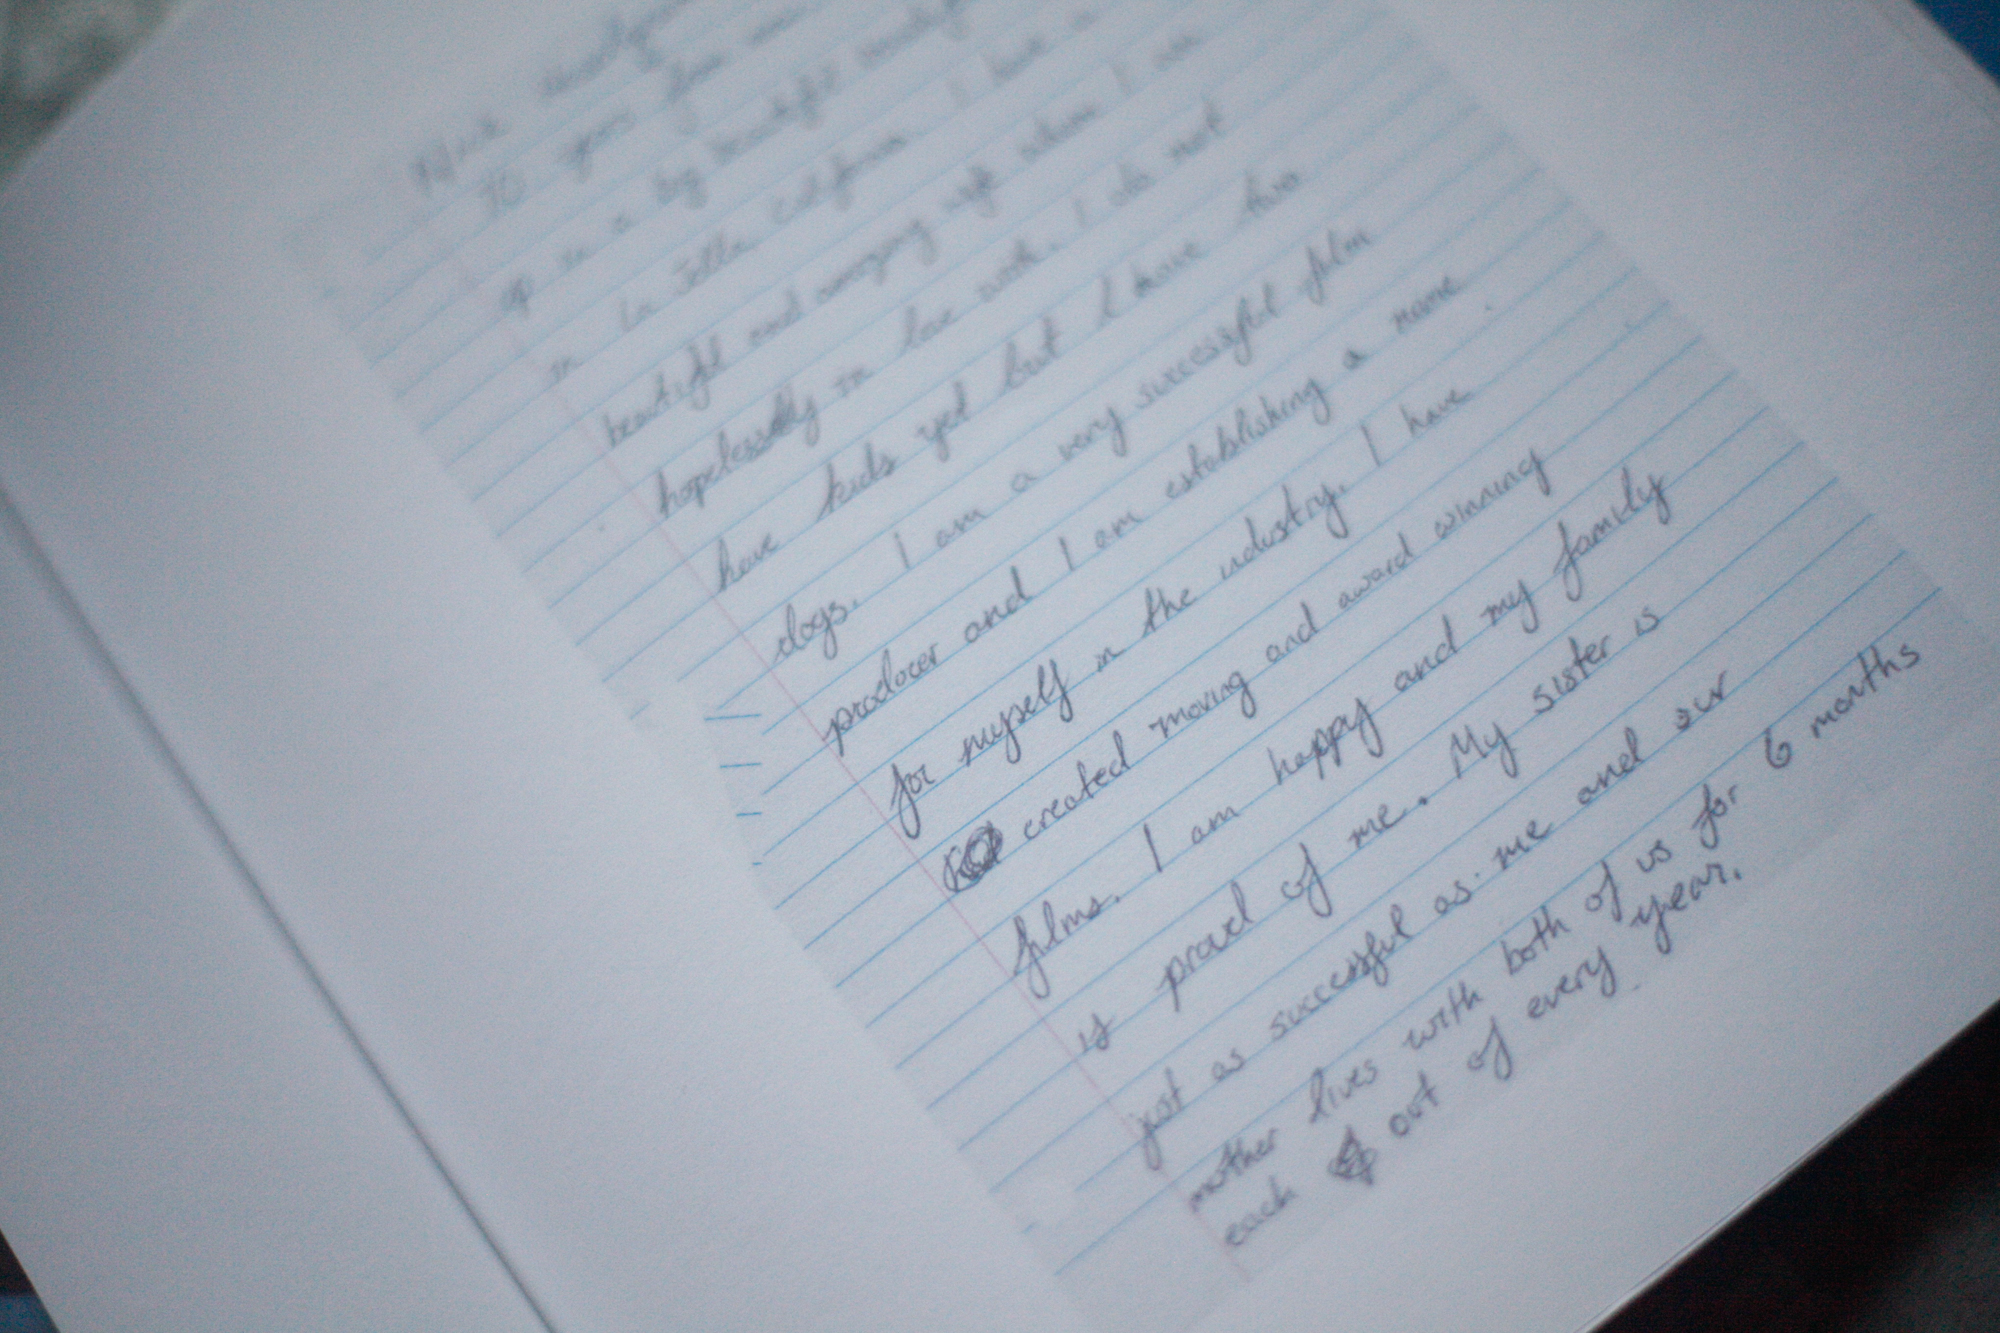 10 years from now
up in a big beautiful
in La Jolla California. I have a
beautiful and amazing wife whom I am
hopelessly in love with. I do not
have kids yet but I have two
dogs. I am a very successful film
producer and I am establishing a name
for myself in the industry. I have
created moving and award winning
films. I am happy and my family
is proud of me. My sister is
just as successful as me and our
mother lives with both of us for 6 months
each out of every year.